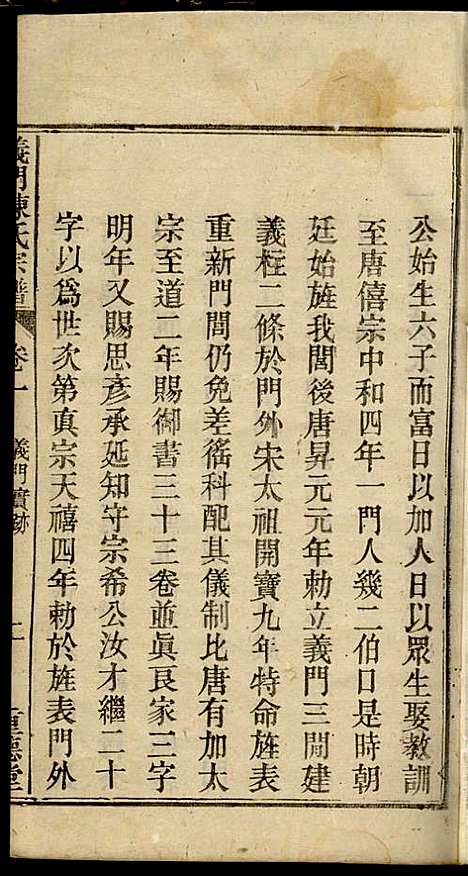 公始生六子而富日以加人日以眾生娶教訓
至唐僖宗中和四年一門人幾二伯口是時朝
廷始旌我閭後唐昇元元年勅立義門三間建
義柱二條於門外宋太祖開寶九年特命旌表
重新門閭仍免差徭科配其儀制比唐有加太
宗至道二年賜御書三十三卷並眞良家三字
明年又賜思彥承延知守宗希公汝才繼二十
字以爲世次第真宗天禧四年勅於旌表門外
義門陳氏宗譜 卷一 義門實跡 二